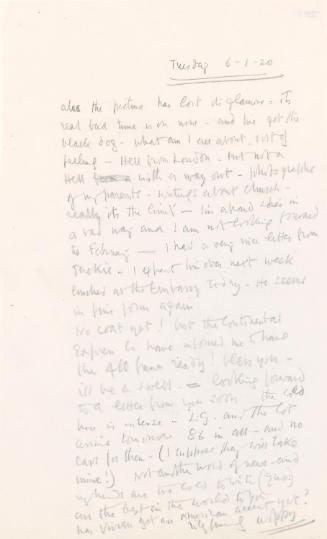 Tuesday 6-1-20
alas the picture has lost its glamour - its
real bad time is on now - and I've got the
black dog - what am I all about, sort of
feeling - Hell from London - but not a
Hell with a way out - photographs
of my parents - writings about church -
really its the limit - I'm afraid she's in
a bad way and I am not looking forward
to February - I had a very nice letter from
Jackie - I expect him over next week
lunched at the Embassy today - He seems
in fine form again
No coat yet! but the Continental
Express Co have informed me I have
the 400 francs ready! bless you -
ill be a swell - looking forward
to a letter from you soon the cold
here is intense - L.G. and the lot
arrive tomorrow 86 in all - and no
cars for them - (I suppose they will take
mine!) Not another word of news - and
my hands are too cold to write
all the best in the world to you
has Vivian got an American accent yet?